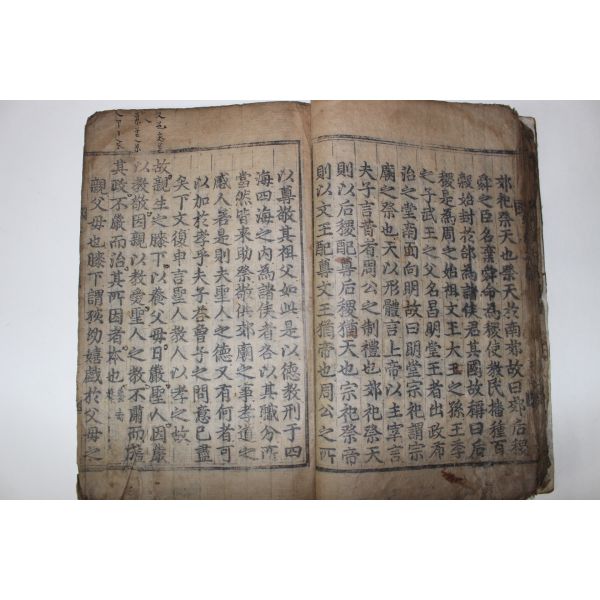 郊祀祭天也祭天於南郊故曰郊后稷
舜之臣名棄舜命爲稷使敎民播種百
穀始封於邰爲諸侯君其國故稱曰后
稷是爲周之始祖文王大王之孫王季
之子武王之父名昌明堂王者出政布
治之堂南面向明故曰明堂宗祀謂宗
廟之祭也天以形體言上帝以主宰言
夫子言昔者周公之制禮也郊祀祭天
則以后稷配尊后稷猶天也宗祀祭帝
則以文王配尊文王猶帝也周公之所
以尊敬其祖父如此是以德敎刑于四
海四海之內爲諸侯者各以其職分所
當然皆來助祭敬供郊廟之事孝道之
感人若是則夫聖人之德又有何者可
以加於孝乎夫子荅曾子之問意已盡
矣下文復申言聖人敎人以孝之故
故親生之膝下以養父母日嚴聖人因嚴
以敎敬因親以敎愛聖人之敎不肅而成
其政不嚴而治其所因者本也
親父母也膝下謂孩幼嬉戲於父母之